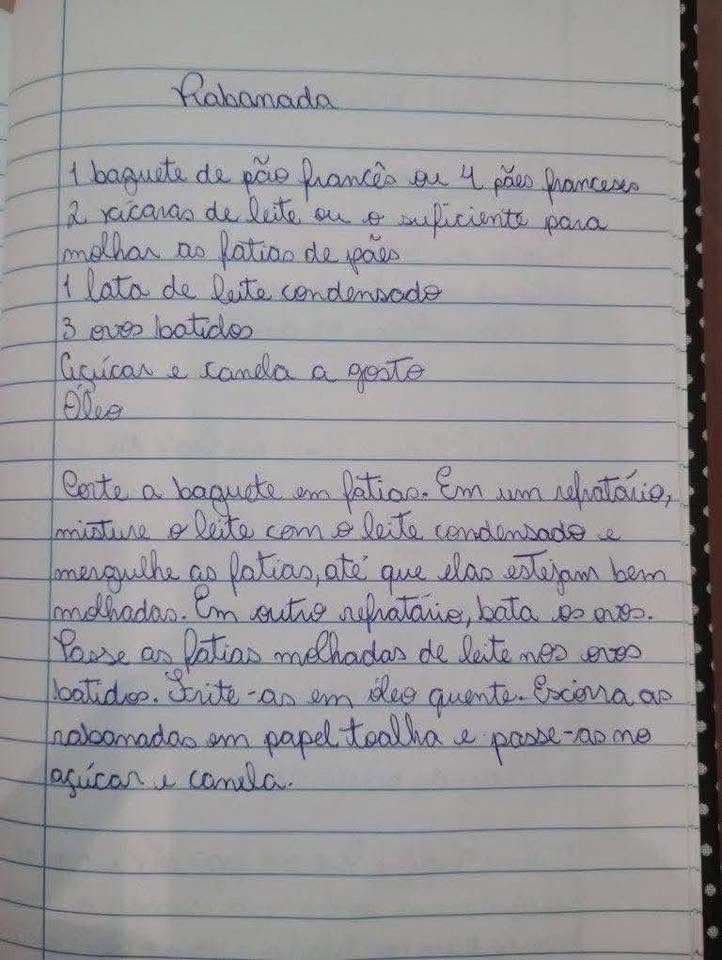 Rabanada
1 baguete de pão francês ou 4 pães franceses
2 xícaras de leite ou o suficiente para
molhar as fatias de pães
1 lata de leite condensado
3 ovos batidos
Açúcar e canela a gosto
Óleo
Corte a baguete em fatias. Em um refratário,
misture o leite com o leite condensado e
mergulhe as fatias, até que elas estejam bem
molhadas. Em outro refratário, bata os ovos.
Passe as fatias molhadas de leite nos ovos
batidos. Frite-as em óleo quente. Escorra as
rabanadas em papel toalha e passe-as no
açúcar e canela.